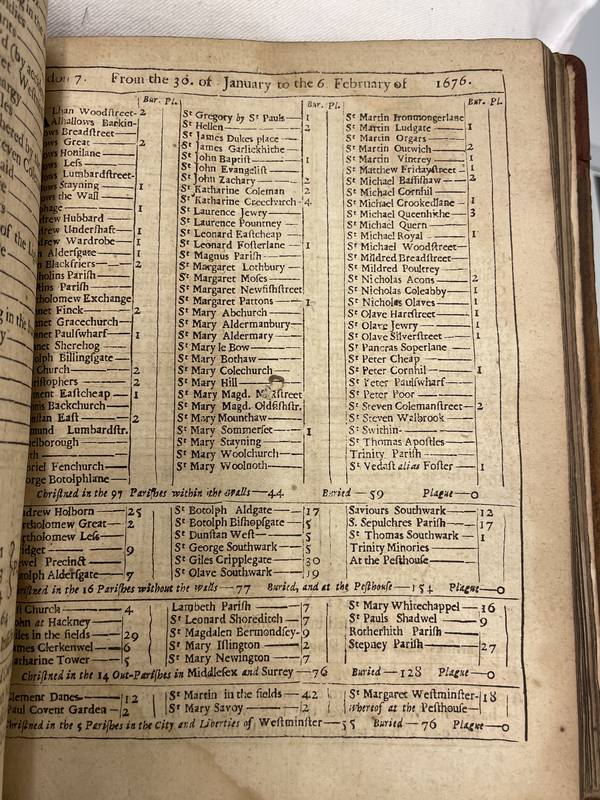 don 7. From the 30. of January to the 6 February of 1676.
Bur. Pl.
Woodſtreet- 2
Alhallows Barkin-
ows Breadſtreet—
ows Great — 2
ows Honilane —
ows Leſs —
ows Lumbardſtreet-
ows Stayning — 1
ows the Wall —
phage — 1
drew Hubbard —
rew Underſhaft— 1
rew Wardrobe — 1
n Alderſgate — 1
n Blackfriers — 2
holins Pariſh —
tins Pariſh —
tholomew Exchange
net Finck — 2
net Gracechurch —
net Paulſwharf — 1
net Sherehog —
olph Billingſgate —
Church — 2
iſtophers — 2
ment Eaſtcheap — 1
nis Backchurch —
ſtan Eaſt — 2
mund Lumbardſtr.
elborough —
th —
briel Fenchurch —
orge Botolphlane—
Bur. Pl.
St Gregory by St Pauls — 1
St Hellen — 2
St James Dukes place —
St James Garlickhithe —
St John Baptiſt — 1
St John Evangeliſt —
St John Zachary — 2
St Katharine Coleman — 2
St Katharine Creechurch - 4
St Laurence Jewry —
St Laurence Pountney —
St Leonard Eaſtcheap —
St Leonard Foſterlane — 1
St Magnus Pariſh —
St Margaret Lothbury —
St Margaret Moſes —
St Margaret Newfiſhſtreet
St Margaret Pattons — 1
St Mary Abchurch —
St Mary Aldermanbury—
St Mary Aldermary —
St Mary le Bow —
St Mary Bothaw —
St Mary Colechurch —
St Mary Hill —
St Mary Magd. Milkſtreet
St Mary Magd. Oldfiſhſtr.
St Mary Mounthaw —
St Mary Sommerſet — 1
St Mary Stayning —
St Mary Woolchurch —
St Mary Woolnoth —
Bur. Pl.
St Martin Ironmongerlane
St Martin Ludgate — 1
St Martin Orgars —
St Martin Outwich — 2
St Martin Vintrey — 1
St Matthew Fridayſtreet - 1
St Michael Baſſiſhaw — 2
St Michael Cornhil —
St Michael Crookedlane — 1
St Michael Queenhithe — 3
St Michael Quern —
St Michael Royal — 1
St Michael Woodſtreet—
St Mildred Breadſtreet—
St Mildred Poultrey —
St Nicholas Acons — 2
St Nicholas Coleabby — 1
St Nicholas Olaves — 1
St Olave Hartſtreet — 1
St Olave Jewry — 1
St Olave Silverſtreet — 1
St Pancras Soperlane —
St Peter Cheap —
St Peter Cornhil — 1
St Peter Paulſwharf —
St Peter Poor —
St Steven Colemanſtreet— 2
St Steven Walbrook —
St Swithin —
St Thomas Apoſtles —
Trinity Pariſh —
St Vedaſt alias Foſter — 1
Chriſtned in the 97 Pariſhes within the walls — 44 Buried — 59 Plague — 0
drew Holborn — 25
rtholomew Great — 2
rtholomew Leſs —
ridget — 9
wel Precinct —
otolph Alderſgate — 7
St Botolph Aldgate — 17
St Botolph Biſhopſgate — 5
St Dunſtan Weſt — 5
St George Southwark — 5
St Giles Cripplegate — 30
St Olave Southwark — 19
Saviours Southwark — 12
S. Sepulchres Pariſh — 17
St Thomas Southwark — 1
Trinity Minories —
At the Peſthouſe —
riſtned in the 16 Pariſhes without the Walls — 77 Buried, and at the Peſthouſe — 154 Plague — 0
ſt Church — 4
ohn at Hackney —
iles in the fields — 29
ames Clerkenwel — 6
atharine Tower — 5
Lambeth Pariſh — 7
St Leonard Shoreditch — 7
St Magdalen Bermondſey- 9
St Mary Iſlington — 2
St Mary Newington — 7
St Mary Whitechappel — 16
St Pauls Shadwel — 9
Rotherhith Pariſh —
Stepney Pariſh — 27
Chriſtned in the 14 Out-Pariſhes in Middleſex and Surrey — 76 Buried — 128 Plague — 0
Clement Danes — 12
Paul Covent Garden — 2
St Martin in the fields — 42
St Mary Savoy — 2
St Margaret Weſtminſter- 18
whereof at the Peſthouſe—
Chriſtned in the 5 Pariſhes in the City and Liberties of Weſtminſter — 55 Buried — 76 Plague — 0